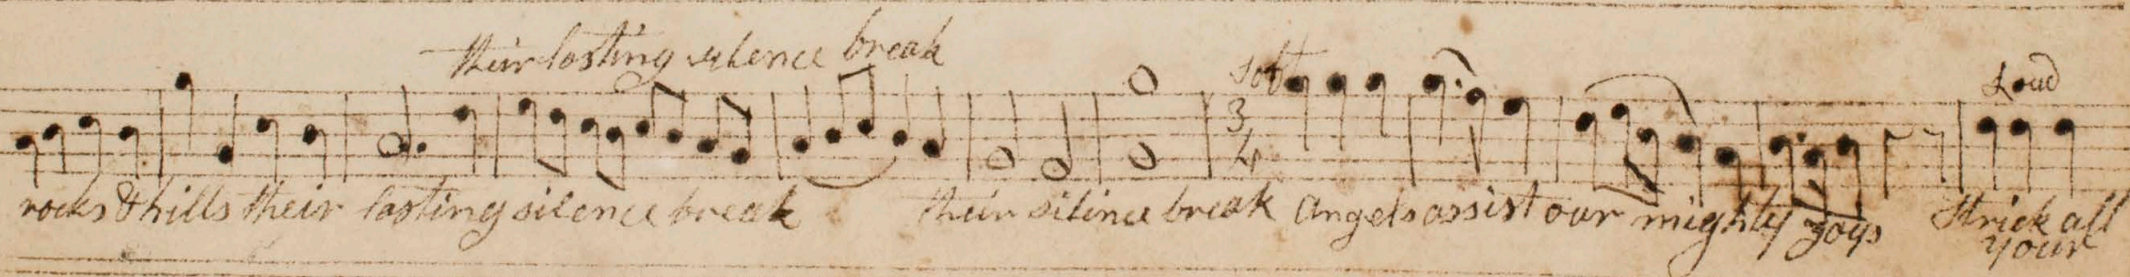 their lasting silence break
Soft
Loud
3
4
rocks & hills their lasting silence break their silence break Angels assist our mighty Joys Strick all
your